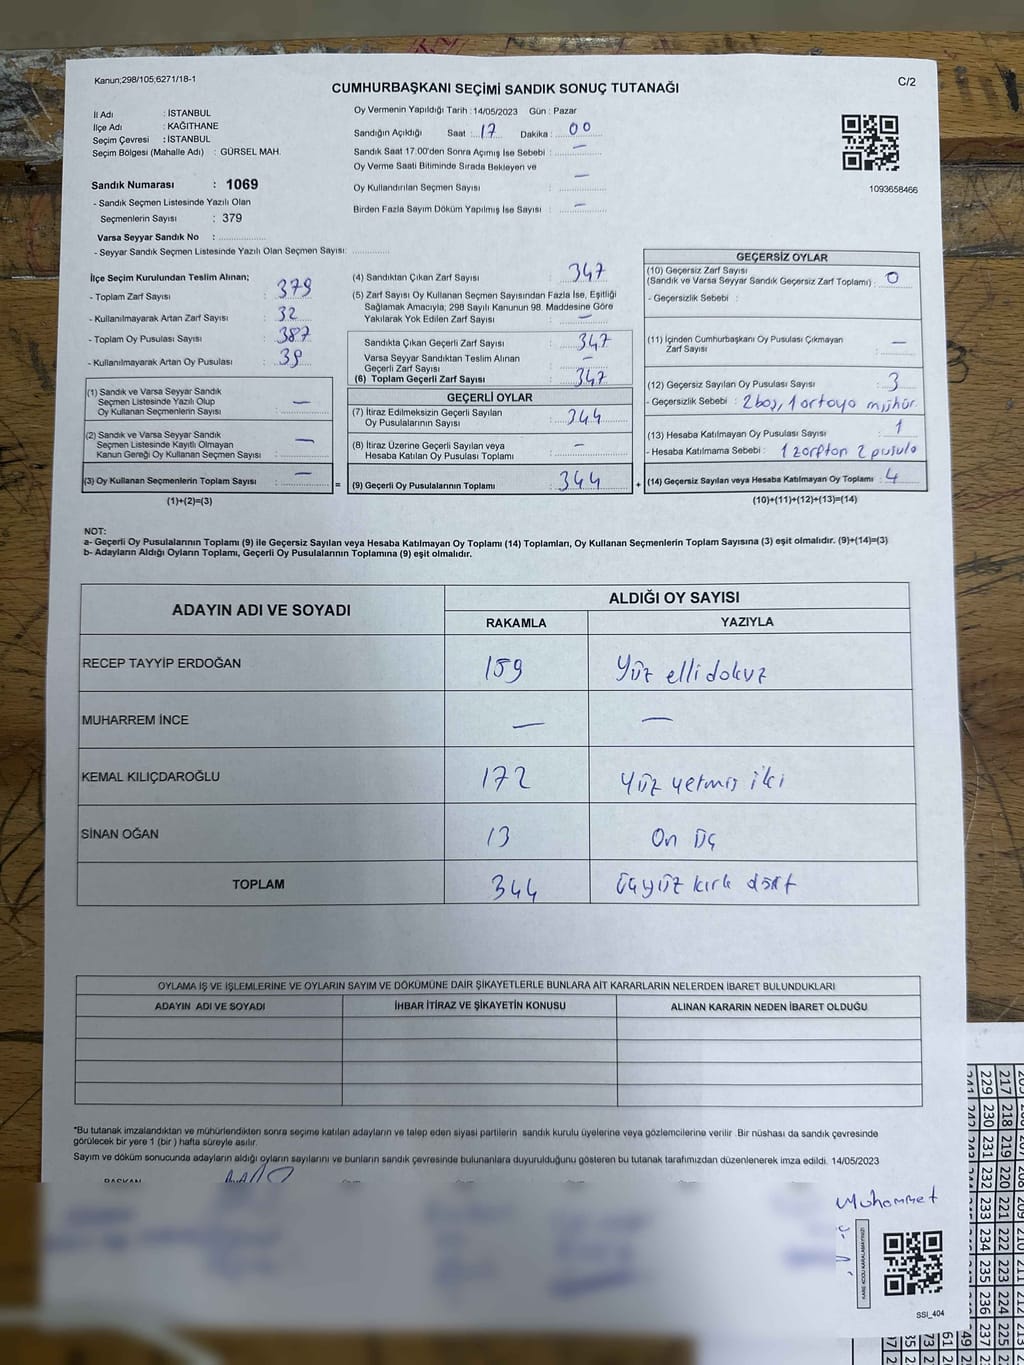 Kanun;298/105;6271/18-1
C/2
CUMHURBAŞKANI SEÇİMİ SANDIK SONUÇ TUTANAĞI
İl Adı : İSTANBUL
İlçe Adı : KAĞITHANE
Seçim Çevresi : İSTANBUL
Seçim Bölgesi (Mahalle Adı) : GÜRSEL MAH.
Sandık Numarası : 1069
- Sandık Seçmen Listesinde Yazılı Olan
Seçmenlerin Sayısı : 379
Varsa Seyyar Sandık No :
- Seyyar Sandık Seçmen Listesinde Yazılı Olan Seçmen Sayısı:
Oy Vermenin Yapıldığı Tarih : 14/05/2023 Gün : Pazar
Sandığın Açıldığı Saat : 17 Dakika : 00
Sandık Saat 17:00'den Sonra Açımış İse Sebebi : —
Oy Verme Saati Bitiminde Sırada Bekleyen ve
Oy Kullandırılan Seçmen Sayısı : —
Birden Fazla Sayım Döküm Yapılmış İse Sayısı : —
1093658466
İlçe Seçim Kurulundan Teslim Alınan;
- Toplam Zarf Sayısı : 379
- Kullanılmayarak Artan Zarf Sayısı : 32
- Toplam Oy Pusulası Sayısı : 387
- Kullanılmayarak Artan Oy Pusulası : 39
(1) Sandık ve Varsa Seyyar Sandık
Seçmen Listesinde Yazılı Olup
Oy Kullanan Seçmenlerin Sayısı : —
(2) Sandık ve Varsa Seyyar Sandık
Seçmen Listesinde Kayıtlı Olmayan
Kanun Gereği Oy Kullanan Seçmen Sayısı : —
(3) Oy Kullanan Seçmenlerin Toplam Sayısı : —
(1)+(2)=(3)
=
(4) Sandıktan Çıkan Zarf Sayısı : 347
(5) Zarf Sayısı Oy Kullanan Seçmen Sayısından Fazla İse, Eşitliği
Sağlamak Amacıyla; 298 Sayılı Kanunun 98. Maddesine Göre
Yakılarak Yok Edilen Zarf Sayısı : —
Sandıkta Çıkan Geçerli Zarf Sayısı : 347
Varsa Seyyar Sandıktan Teslim Alınan
Geçerli Zarf Sayısı : —
(6) Toplam Geçerli Zarf Sayısı : 347
GEÇERLİ OYLAR
(7) İtiraz Edilmeksizin Geçerli Sayılan
Oy Pusulalarının Sayısı : 344
(8) İtiraz Üzerine Geçerli Sayılan veya
Hesaba Katılan Oy Pusulası Toplamı : —
(9) Geçerli Oy Pusulalarının Toplamı : 344
+
GEÇERSİZ OYLAR
(10) Geçersiz Zarf Sayısı
(Sandık ve Varsa Seyyar Sandık Geçersiz Zarf Toplamı) : 0
- Geçersizlik Sebebi :
(11) İçinden Cumhurbaşkanı Oy Pusulası Çıkmayan
Zarf Sayısı : —
(12) Geçersiz Sayılan Oy Pusulası Sayısı : 3
- Geçersizlik Sebebi : 2 boş, 1 ortaya mühür.
(13) Hesaba Katılmayan Oy Pusulası Sayısı : 1
- Hesaba Katılmama Sebebi : 1 zarftan 2 pusula
(14) Geçersiz Sayılan veya Hesaba Katılmayan Oy Toplamı : 4
(10)+(11)+(12)+(13)=(14)
NOT:
a- Geçerli Oy Pusulalarının Toplamı (9) ile Geçersiz Sayılan veya Hesaba Katılmayan Oy Toplamı (14) Toplamları, Oy Kullanan Seçmenlerin Toplam Sayısına (3) eşit olmalıdır. (9)+(14)=(3)
b- Adayların Aldığı Oyların Toplamı, Geçerli Oy Pusulalarının Toplamına (9) eşit olmalıdır.
ADAYIN ADI VE SOYADI
ALDIĞI OY SAYISI
RAKAMLA YAZIYLA
RECEP TAYYİP ERDOĞAN 159 Yüz elli dokuz
MUHARREM İNCE — —
KEMAL KILIÇDAROĞLU 172 Yüz yetmiş iki
SİNAN OĞAN 13 On üç
TOPLAM 344 üçyüz kırk dört
OYLAMA İŞ VE İŞLEMLERİNE VE OYLARIN SAYIM VE DÖKÜMÜNE DAİR ŞİKAYETLERLE BUNLARA AİT KARARLARIN NELERDEN İBARET BULUNDUKLARI
ADAYIN ADI VE SOYADI İHBAR İTİRAZ VE ŞİKAYETİN KONUSU ALINAN KARARIN NEDEN İBARET OLDUĞU
*Bu tutanak imzalandıktan ve mühürlendikten sonra seçime katılan adayların ve talep eden siyasi partilerin sandık kurulu üyelerine veya gözlemcilerine verilir .Bir nüshası da sandık çevresinde
görülecek bir yere 1 (bir ) hafta süreyle asılır.
Sayım ve döküm sonucunda adayların aldığı oyların sayılarını ve bunların sandık çevresinde bulunanlara duyurulduğunu gösteren bu tutanak tarafımızdan düzenlenerek imza edildi. 14/05/2023
BAŞKAN
Muhammet
KARE KODU KARALAMAYINIZ!
SSI_404
229 217
230 218
231 219
232 220
233 221
234 222
235 223
236 224
237 225